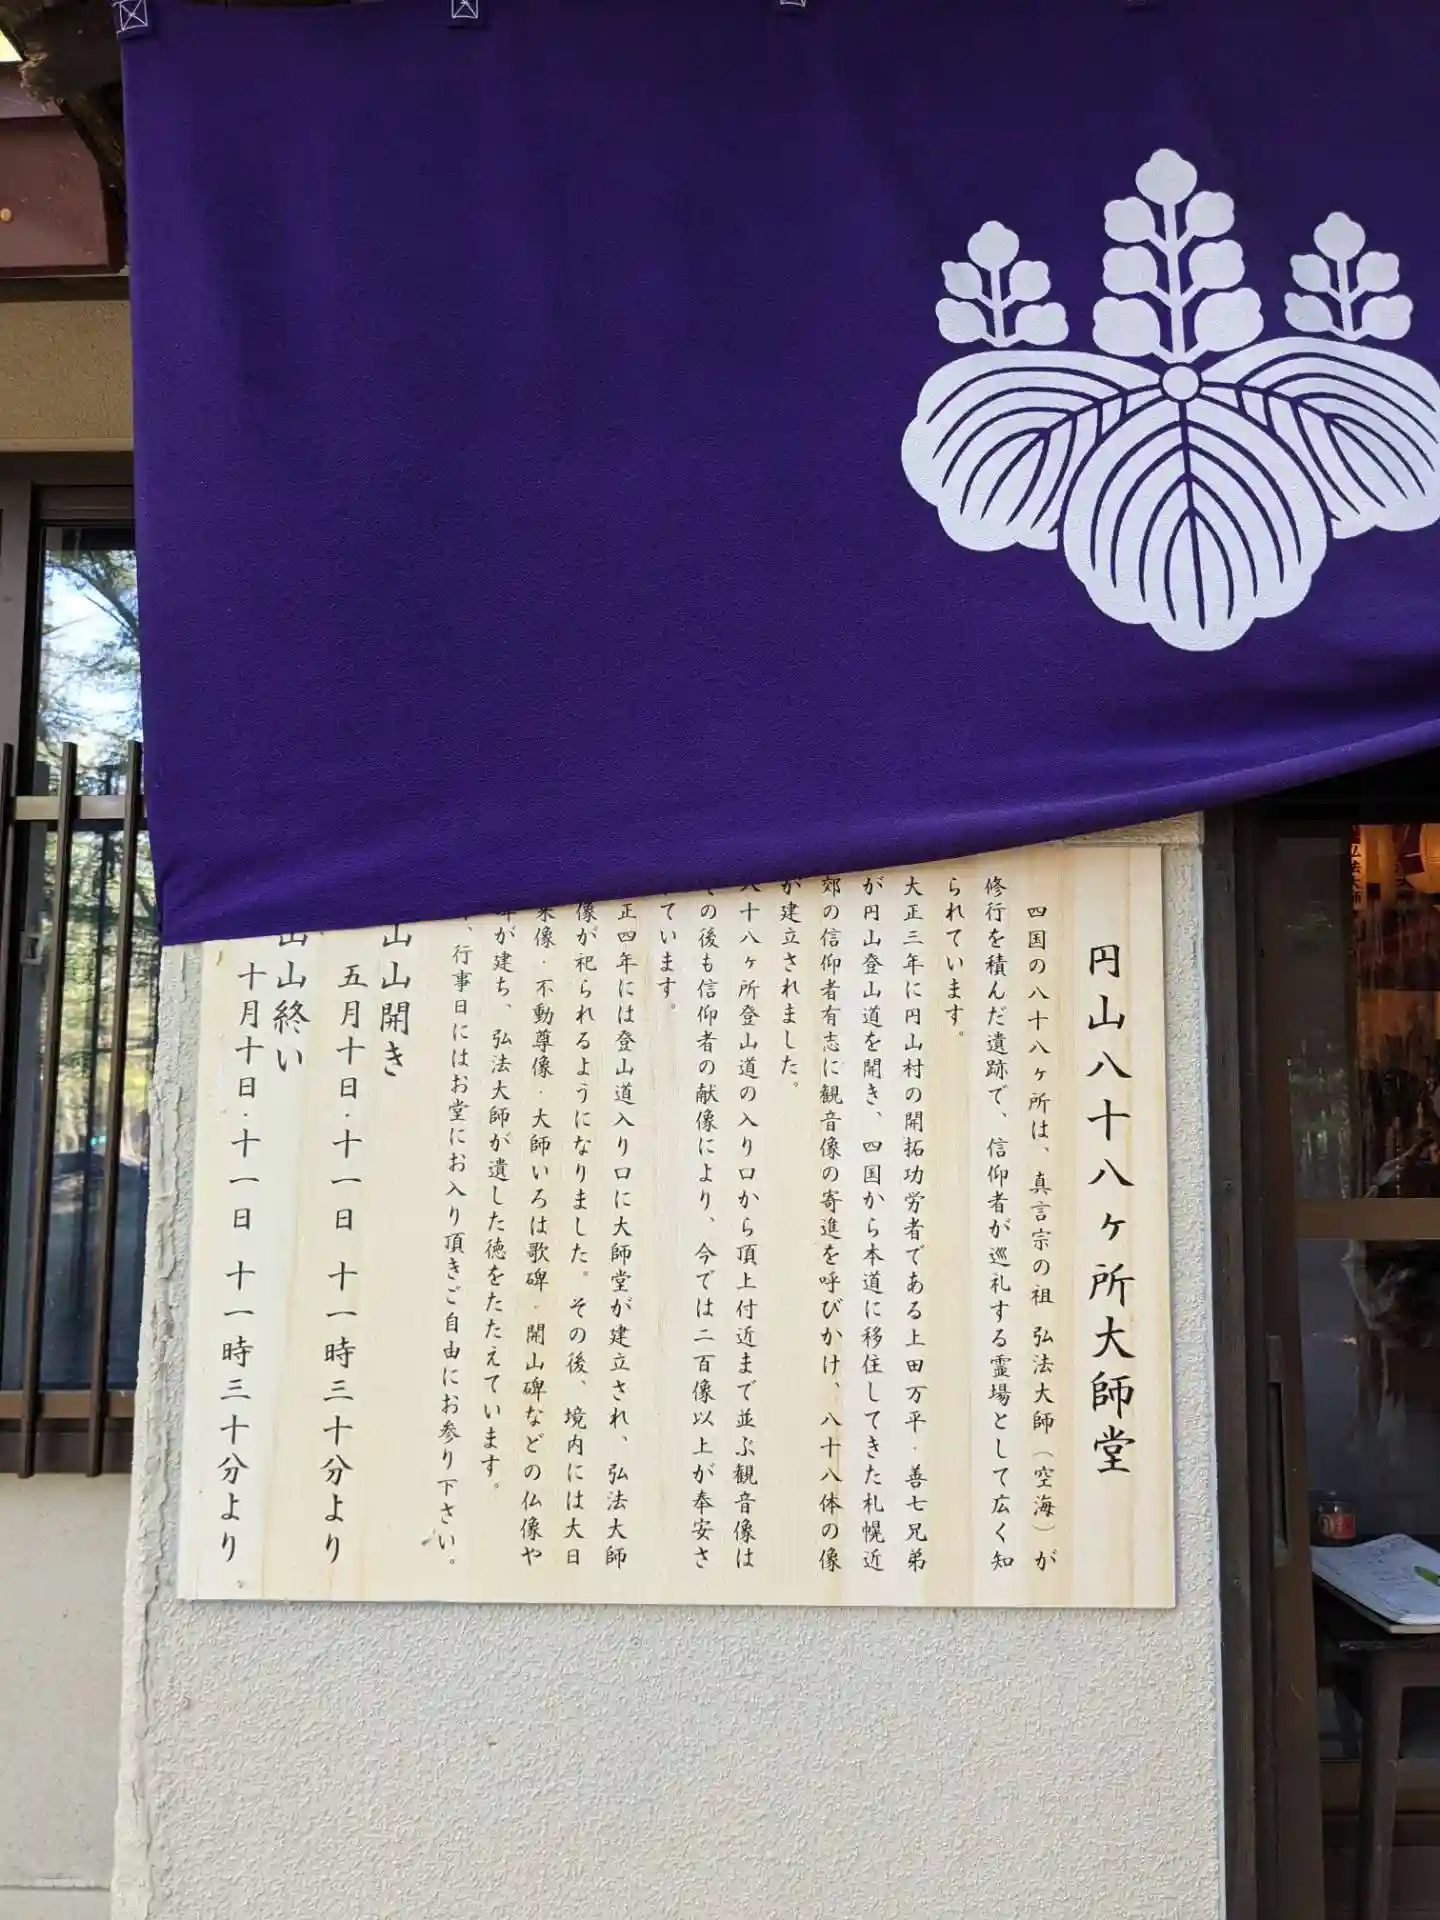 円山八十八ヶ所大師堂
四国の八十八ヶ所は、真言宗の祖 弘法大師（空海）が
修行を積んだ遺跡で、信仰者が巡礼する霊場として広く知
られています。
大正三年に円山村の開拓功労者である上田万平・善七兄弟
が円山登山道を開き、四国から本道に移住してきた札幌近
郊の信仰者有志に観音像の寄進を呼びかけ、八十八体の像
が建立されました。
八十八ヶ所登山道の入り口から頂上付近まで並ぶ観音像は
その後も信仰者の献像により、今では二百像以上が奉安さ
ています。
正四年には登山道入り口に大師堂が建立され、弘法大師
像が祀られるようになりました。その後、境内には大日
来像・不動尊像・大師いろは歌碑・開山碑などの仏像や
が建ち、弘法大師が遺した徳をたたえています。
、行事日にはお堂にお入り頂きご自由にお参り下さい。
山開き
五月十日・十一日 十一時三十分より
山終い
十月十日・十一日 十一時三十分より
弘法大師